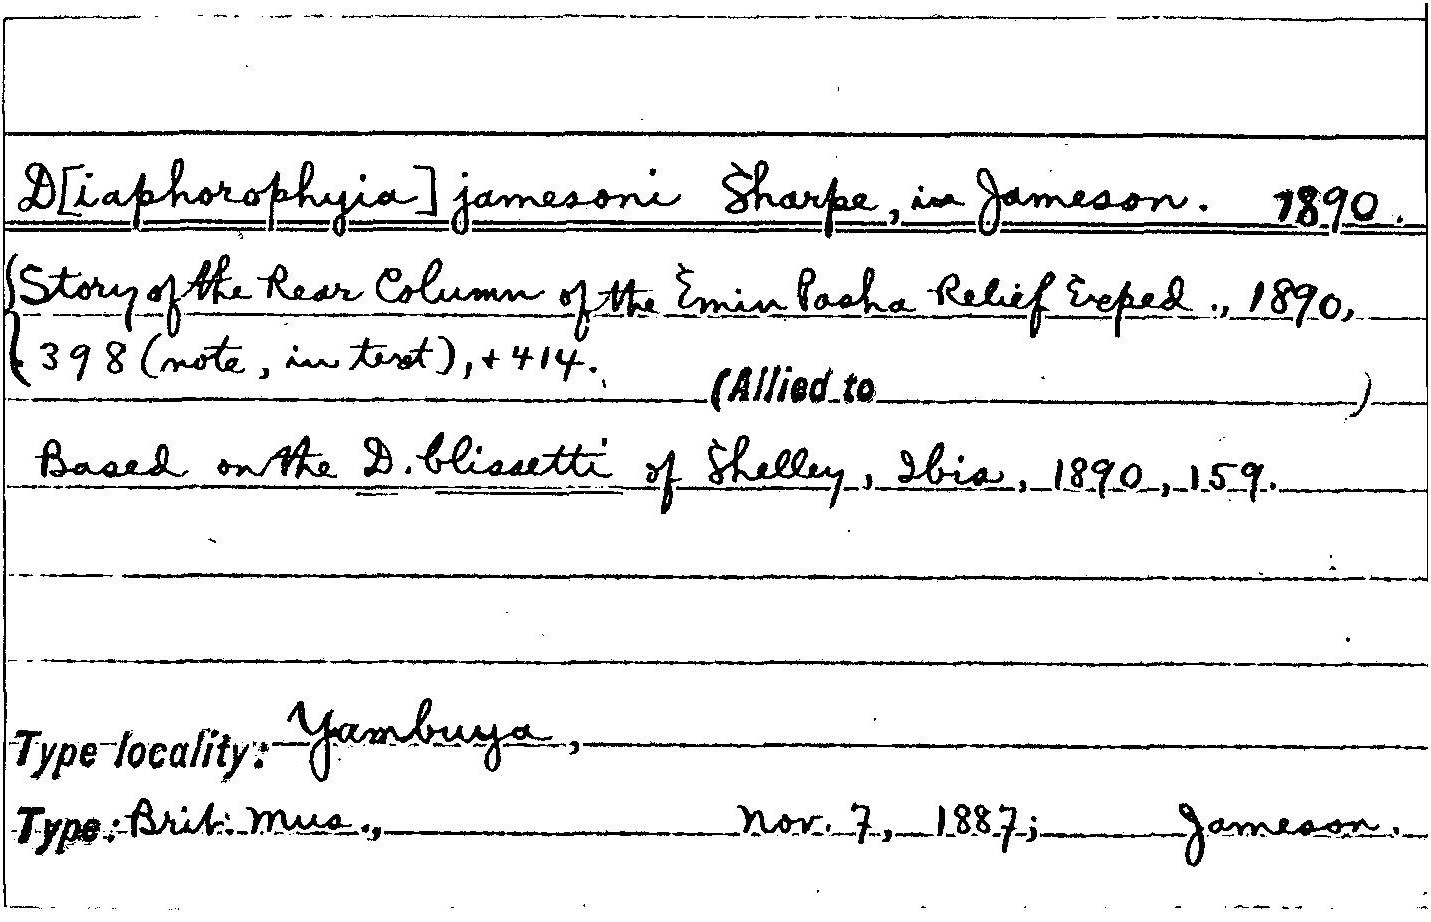 D[iaphorophyia] jamesoni Sharpe, in Jameson. 1890.
Story of the Rear Column of the Emin Pasha Relief Exped., 1890,
398 (note, in text), + 414.
(Allied to )
Based on the D. blissetti of Shelley, Ibis, 1890, 159.
Type locality: Yambuya,
Type: Brit. Mus., Nov. 7, 1887; Jameson.